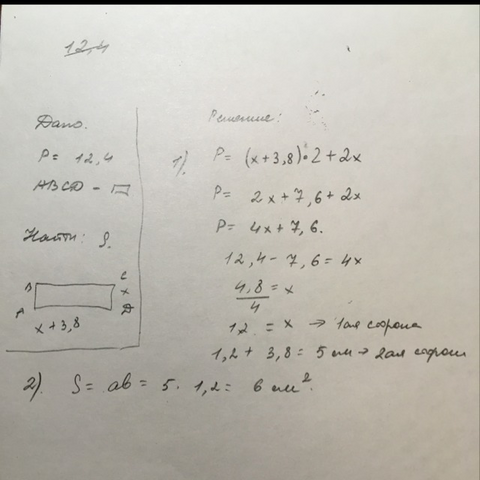 12,4
Дано.
P = 12,4
ABCD -
Найти: S.
B
C
x
A
D
x + 3,8
Решение:
1). P = (x+3,8)·2 + 2x
P = 2x + 7,6 + 2x
P = 4x + 7,6.
12,4 - 7,6 = 4x
4,8/4 = x
1,2 = x → 1ая сторона
1,2 + 3,8 = 5 см → 2ая сторон
2). S = ab = 5 · 1,2 = 6 см².